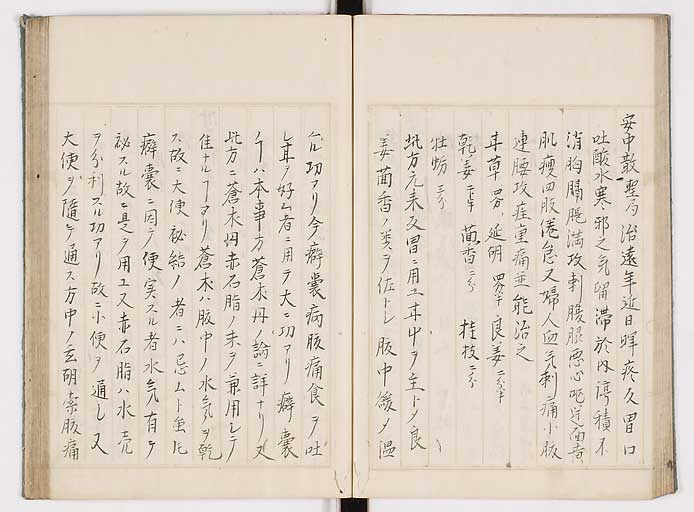 安中散 聖局 治遠年近日脾疼久胃口
吐酸水寒邪之気留滞於内停積不
消胸膈脹満攻刺腹脹悪心嘔逆面黄
肌瘦四肢倦怠又婦人血気刺痛小腹
連腰攻疰重痛並能治之
甘草 四分、延胡 四分半 良姜 二分半
乾姜 二分半 茴香 二分 桂枝 二分
牡蛎 三分
此方元来反胃ニ用ユ甘草ヲ主トメ良
姜茴香ノ类ヲ佐トし腹中緩メ温
ムル功アリ今癖嚢病腹痛食ヲ吐
し甘ヲ好ム者ニ用テ大ニ功アリ癖嚢
ノヿハ本事方蒼朮丹ノ論ニ詳ナリ又
此方ニ蒼朮丹赤石脂ノ末ヲ兼用しテ
佳ナルヿアリ蒼朮ハ腹中ノ水気ヲ乾
ス故ニ大便祕結ノ者ニハ忌ムト虽𪜈
癖嚢ニ因テ便実スル者水気有テ
祕スル故ニ是ヲ用ユ又赤石脂ハ水売
ヲ分利スル功アリ故ニ小便ヲ通し又
大便ヲ随テ通ス方中ノ玄胡索腹痛